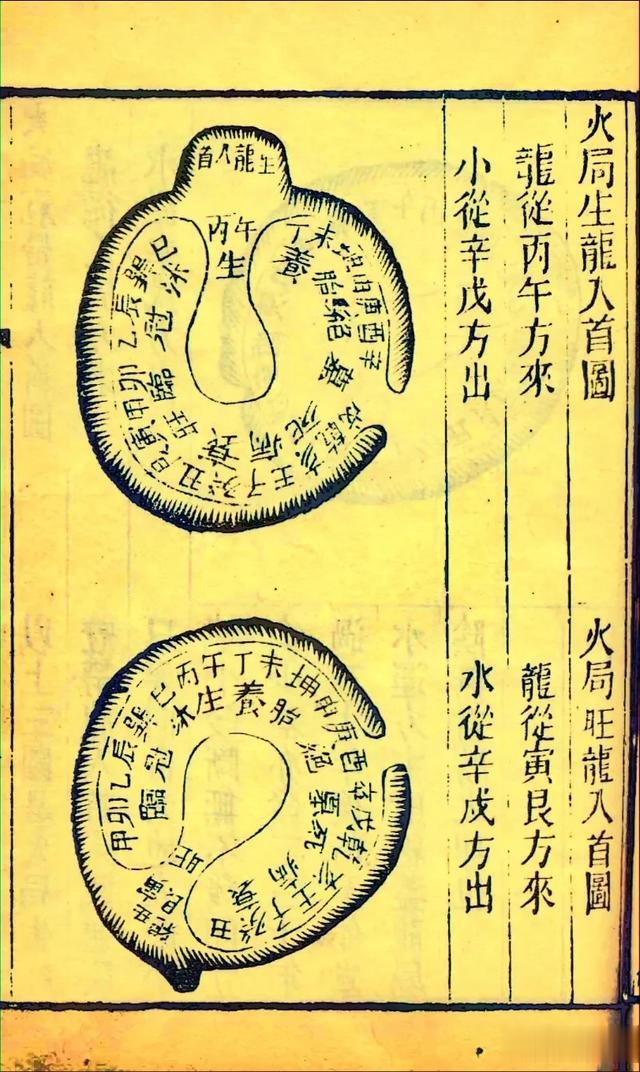 火局生龍入首圖
龍從丙午方來
小從辛戊方出
生龍人首
午丙
生
丁未坤申庚酉辛
養胎絕墓
戌乾亥壬子癸丑艮寅甲卯乙辰巽巳
死病衰旺臨冠沐
火局旺龍入首圖
龍從寅艮方來
水從辛戌方出
甲卯乙辰巽巳丙午丁未坤申庚
臨冠沐生養胎
酉辛戌乾亥壬子癸丑
墓死病衰
旺
艮寅